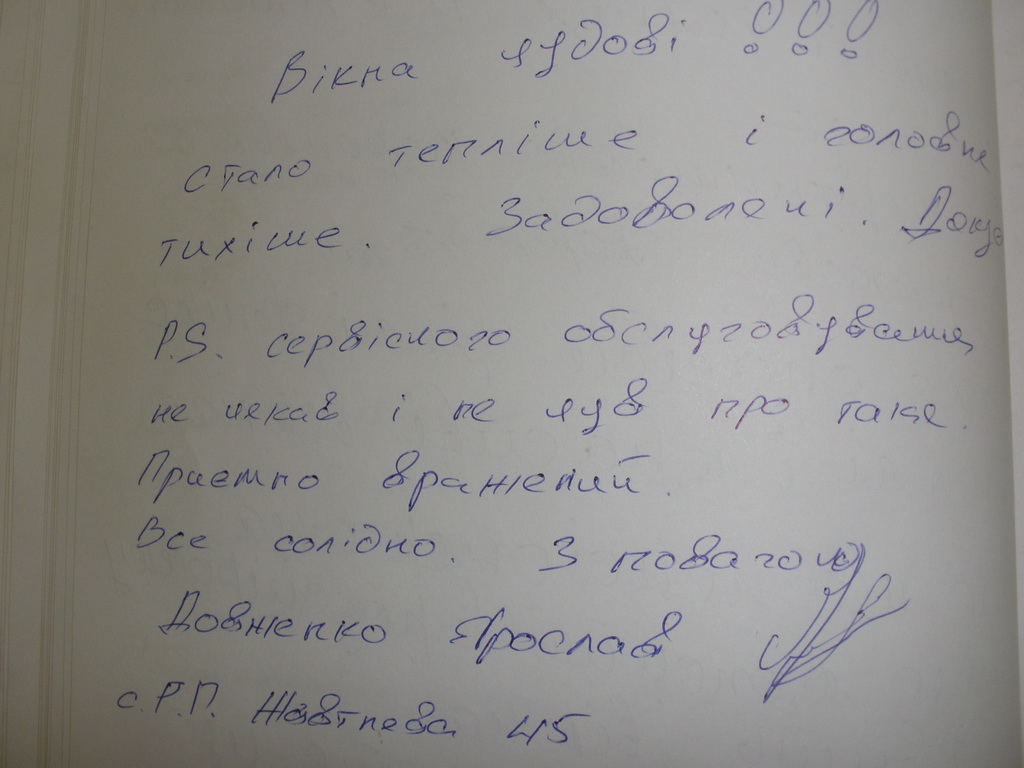 Вікна чудові !!!
стало тепліше і головне
тихіше. Задоволені.
P.S. сервісного обслуговування
не чекав і не чув про таке.
Приємно вражений.
Все солідно. З повагою
Довженко Ярослав
с. Р.П. Жовтнева 45